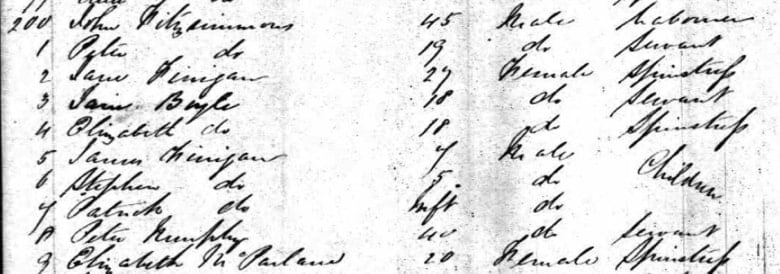 200 John Fitzsimmons 45 Male Labourer
1 Peter do 19 do Servant
2 Jane Finigan 27 Female Spinstress
3 Boyle 18 do Servant
4 Elizabeth do 18 do Spinstress
5 James Finigan 7 Male
6 Stephen do 5 do Children
7 Patrick do Inft do
8 Peter Murphy 40 do Servant
9 Elizabeth McParland 20 Female Spinstress